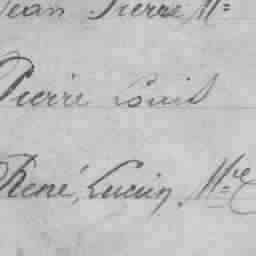 Jean Pierre M=
Pierre Louis
René, Lucien, Mre